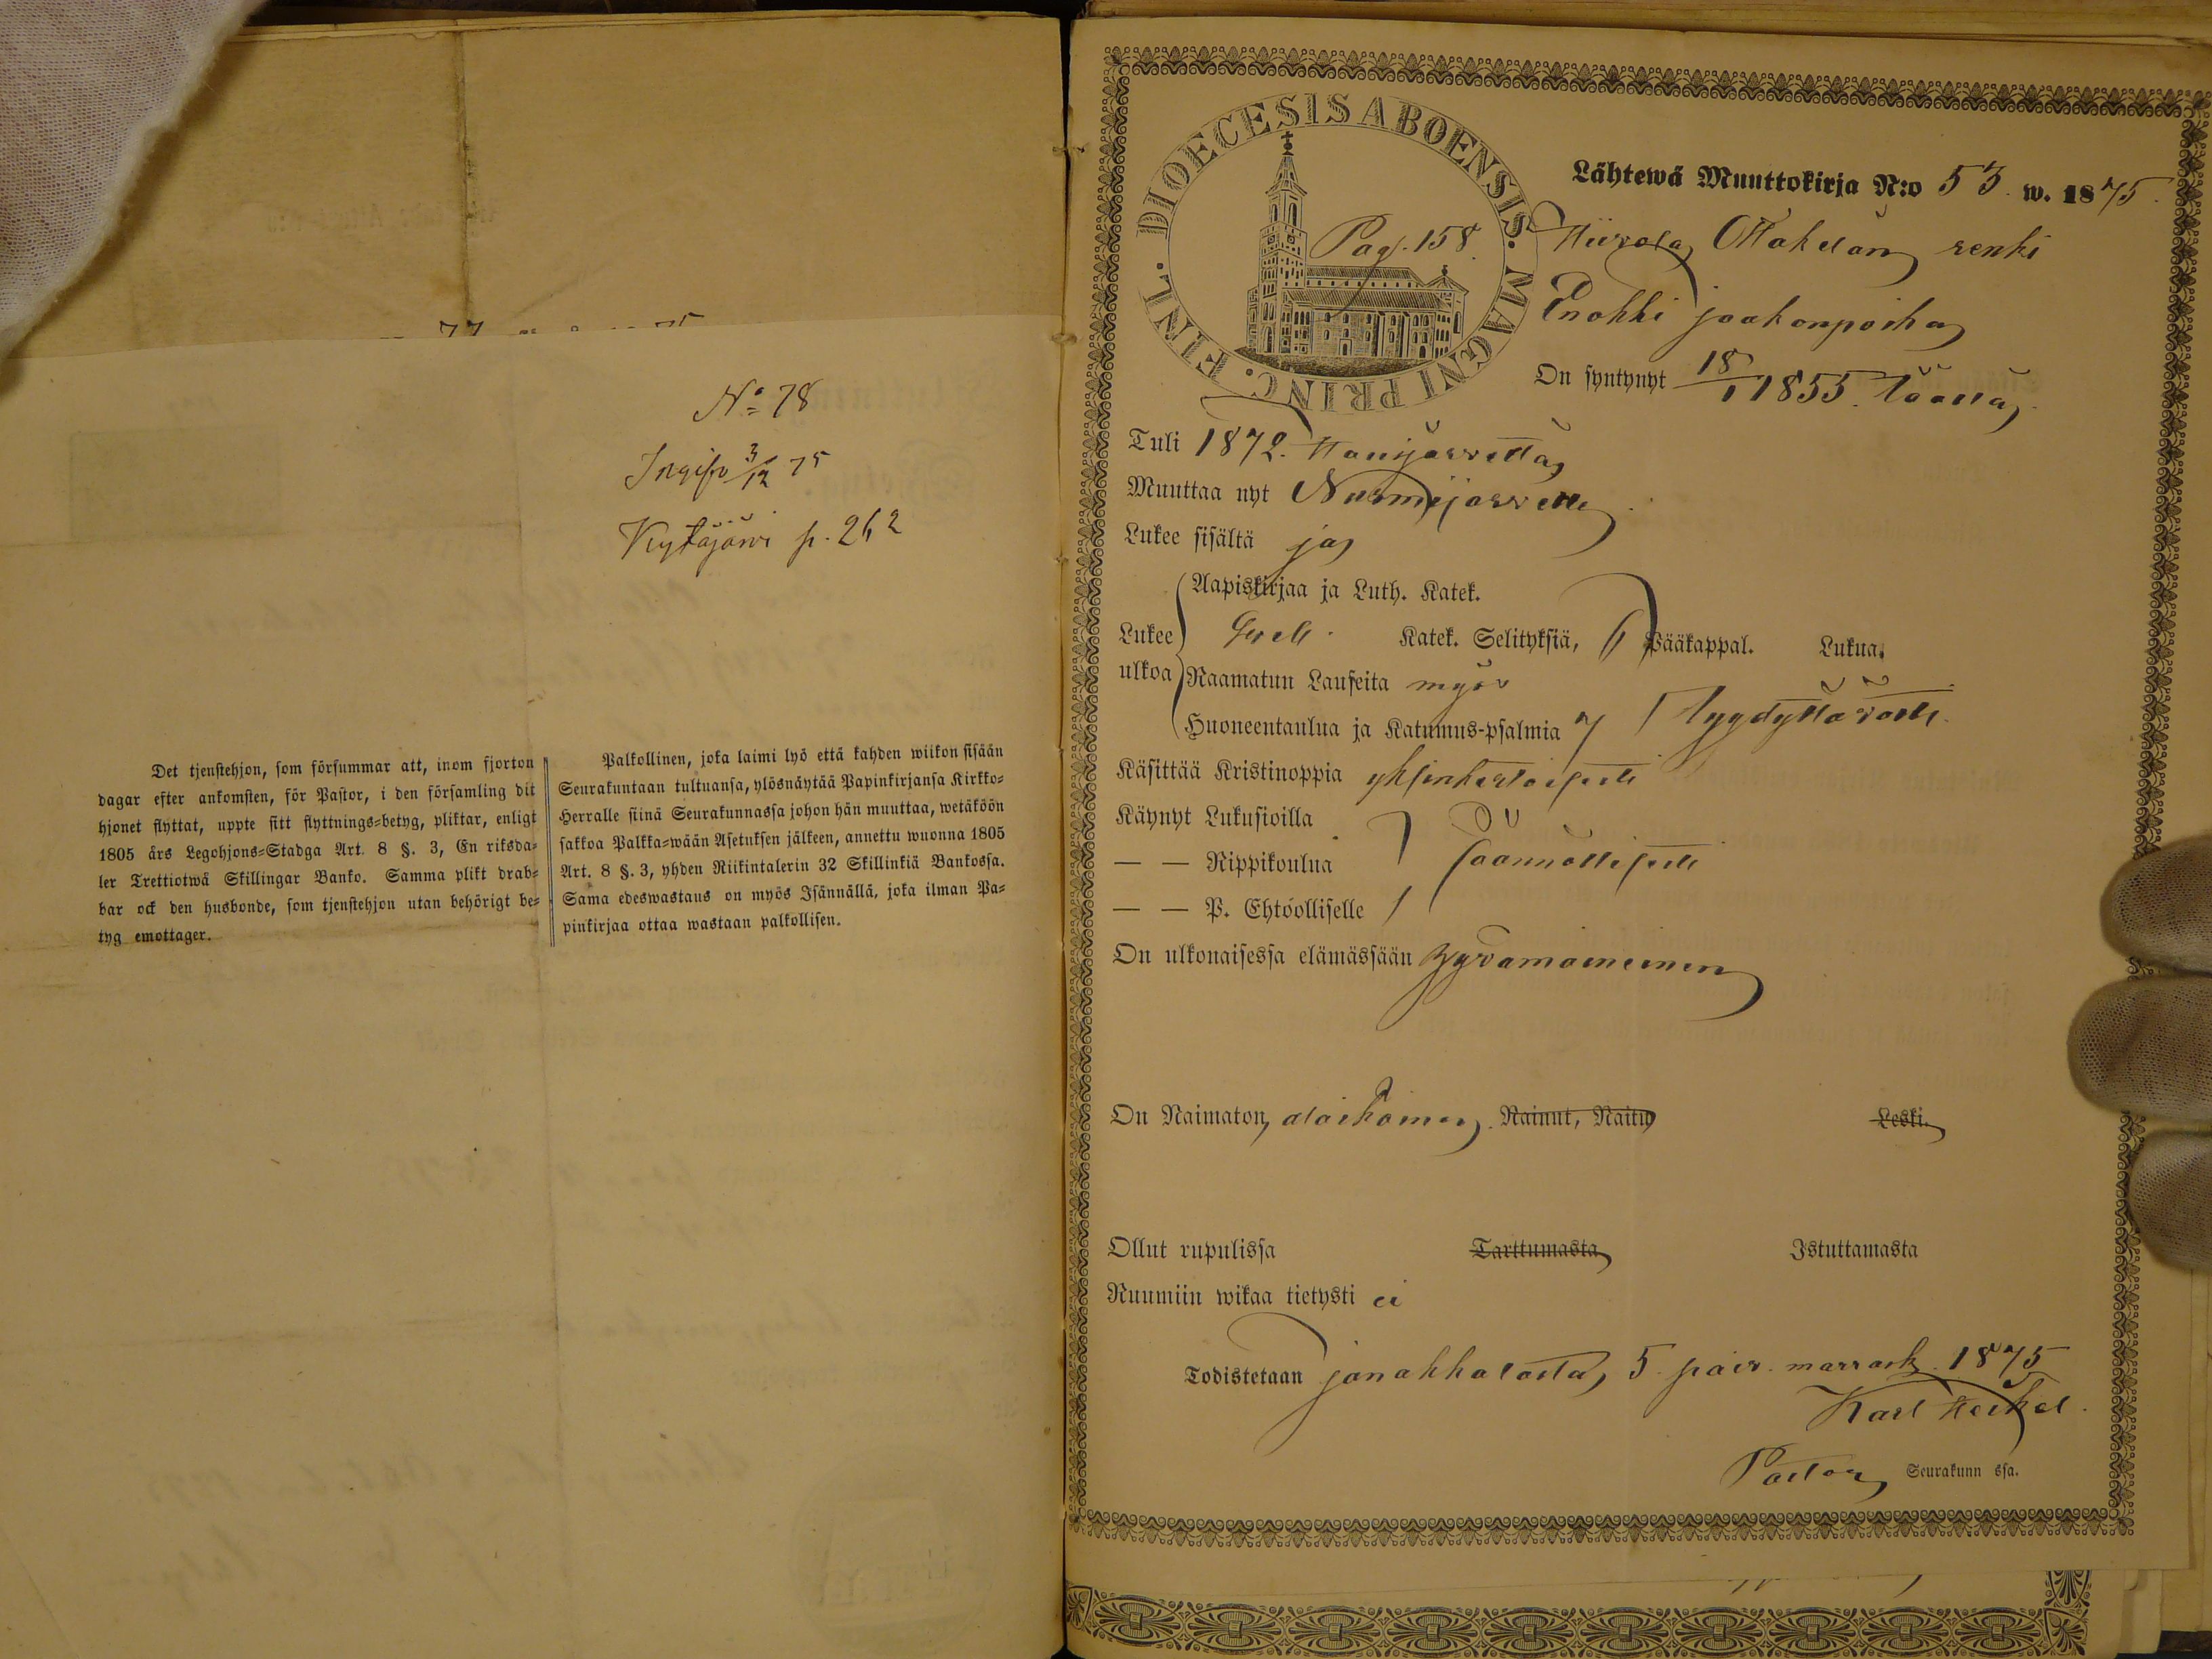 No 78
Ingifv 3/12 75
Kytäjärvi p. 262
Det tjenstehjon, som försummar att, inom fjorton
dagar efter ankomsten, för Pastor, i den församling dit
hjonet flyttat, uppte sitt flyttnings=betyg, pliktar, enligt
1805 års Legohjons=Stadga Art. 8 §. 3, En riksda=
ler Trettiotwå Skillingar Banko. Samma plikt drab=
bar ock den husbonde, som tjenstehjon utan behörigt be=
tyg emottager.
Palkollinen, joka laimi lyö että kahden wiikon sisään
Seurakuntaan tultuansa, ylösnäytää Papinkirjansa Kirkko=
Herralle siinä Seurakunnassa johon hän muuttaa, wetäköön
sakkoa Palkka=wään Asetuksen jälkeen, annettu wuonna 1805
Art. 8 §. 3, yhden Riikintalerin 32 Skillinkiä Bankossa.
Sama edeswastaus on myös Isännällä, joka ilman Pa=
pinkirjaa ottaa wastaan palkollisen.
DIOECESIS ABOENSIS. MAGNI PRINC. FINL.
Pag. 158.
Lähtewä Muuttokirja N:o 53. w. 1875.
Mäkelän renki
Enokki Jaakonpoika
On syntynyt 18/1 1855.
Tuli 1872. Hausjärveltä
Muuttaa nyt Nurmijärvelle
Lukee sisältä ja
Aapiskirjaa ja Luth. Katek.
Lukee Katek. Selityksiä, Pääkappal. Lukua.
ulkoa Raamatun Lauseita myös
Huoneentaulua ja Katumus=psalmia 7 tyydyttävästi.
Käsittää Kristinoppia yksinkertaisesti
Käynyt Lukusioilla
— — Rippikoulua säännöllisesti
— — P. Ehtoolliselle
On ulkonaisessa elämässään hyvämaineinen
On Naimaton, Nainut, Naitu Leski.
Ollut rupulissa Tarttumasta Istuttamasta
Ruumiin wikaa tietysti ei
Todistetaan Janakkalasta, 5 päiv. marrask. 1875
Karl Heikel.
Pastor Seurakunn ssa.